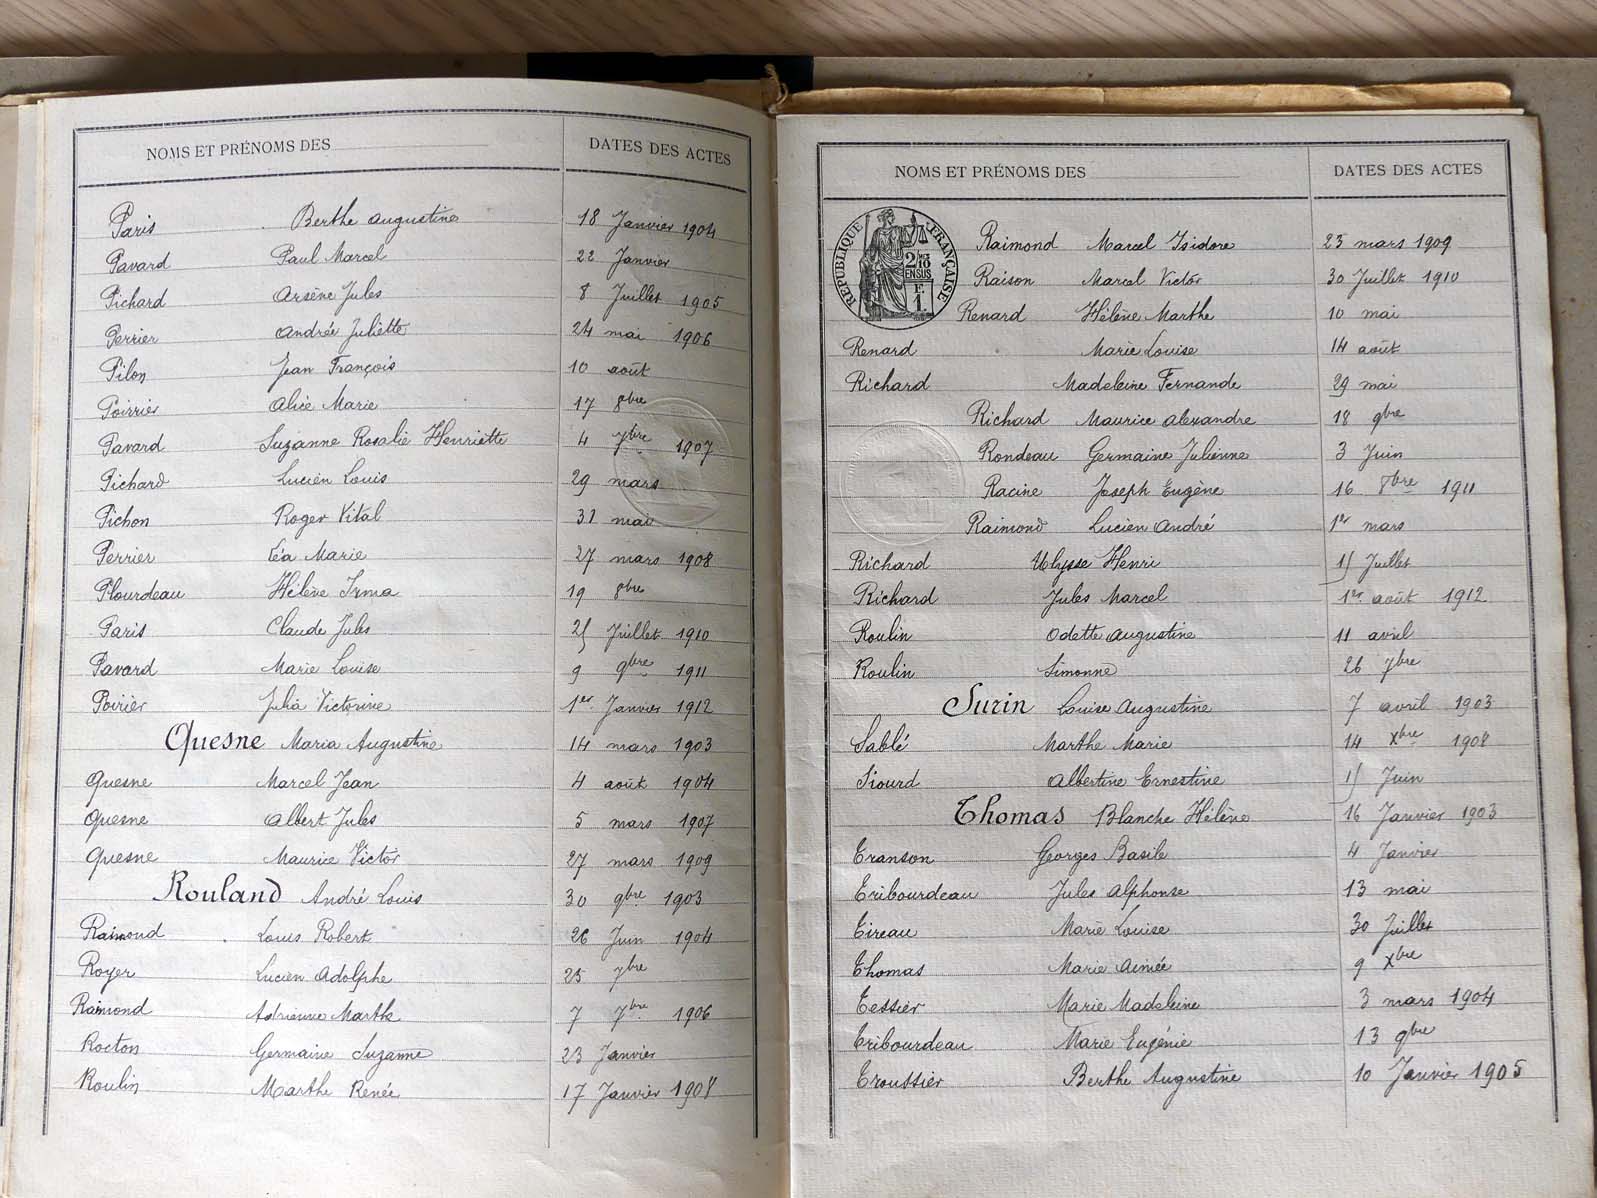 NOMS ET PRÉNOMS DES DATES DES ACTES
Paris Berthe Augustine 18 Janvier 1904
Pavard Paul Marcel 22 Janvier
Pichard Arsène Jules 8 Juillet 1905
Perrier Andrée Juliette 24 mai 1906
Pilon Jean François 10 août
Poirrier Alice Marie 17 8bre
Pavard Suzanne Rosalie Henriette 4 7bre 1907
Pichard Lucien Louis 29 mars
Pichon Roger Vital 31 mai
Perrier Léa Marie 27 mars 1908
Plourdeau Hélène Irma 19 8bre
Paris Claude Jules 25 Juillet 1910
Pavard Marie Louise 9 9bre 1911
Poirièr Julia Victorine 1er Janvier 1912
Quesne Maria Augustine 14 mars 1903
Quesne Marcel Jean 4 août 1904
Quesne Albert Jules 5 mars 1907
Quesne Maurice Victor 27 mars 1909
Rouland André Louis 30 9bre 1903
Raimond Louis Robert 26 Juin 1904
Royer Lucien Adolphe 25 7bre
Raimond Adrienne Marthe 7 7bre 1906
Rocton Germaine Suzanne 23 Janvier
Roulin Marthe Renée 17 Janvier 1908
NOMS ET PRÉNOMS DES DATES DES ACTES
RÉPUBLIQUE FRANÇAISE
2/10 EN SUS
F. 1.
Raimond Marcel Isidore 23 mars 1909
Raison Marcel Victor 30 Juillet 1910
Renard Hélène Marthe 10 mai
Renard Marie Louise 14 août
Richard Madeleine Fernande 29 mai
Richard Maurice Alexandre 18 9bre
Rondeau Germaine Julienne 3 Juin
Racine Joseph Eugène 16 8bre 1911
Raimond Lucien André 1er mars
Richard Ulysse Henri 15 Juillet
Richard Jules Marcel 1er août 1912
Roulin Odette Augustine 11 avril
Roulin Simonne 26 7bre
Surin Louise Augustine 7 avril 1903
Sablé Marthe Marie 14 Xbre 1908
Siourd Albertine Ernestine 15 Juin
Thomas Blanche Hélène 16 Janvier 1903
Transon Georges Basile 4 Janvier
Tribourdeau Jules Alphonse 13 mai
Tireau Marie Louise 30 Juillet
Thomas Marie Aimée 9 Xbre
Tessier Marie Madeleine 3 mars 1904
Tribourdeau Marie Eugénie 13 9bre
Troussier Berthe Augustine 10 Janvier 1905